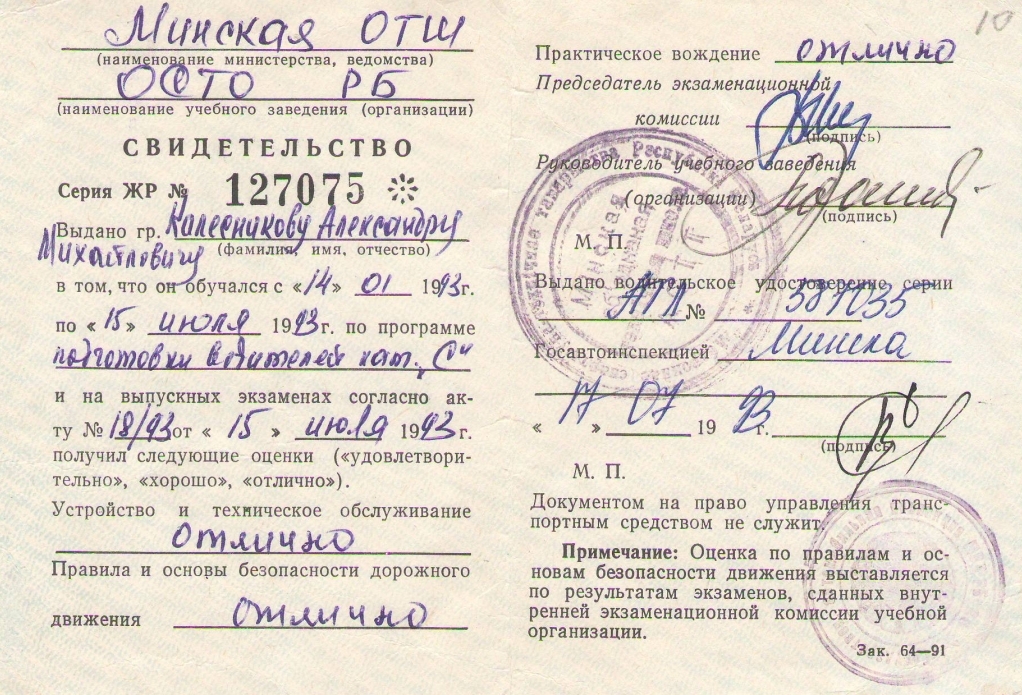 Минская ОТШ
(наименование министерства, ведомства)
ОСТО РБ
(наименование учебного заведения (организации)
СВИДЕТЕЛЬСТВО
Серия ЖР № 127075
Выдано гр. Колесникову Александру
Михайловичу (фамилия, имя, отчество)
в том, что он обучался с «14» 01 1993г.
по «15» июля 1993г. по программе
подготовки водителей кат. „С“
и на выпускных экзаменах согласно ак-
ту № 18/93 от «15» июля 1993г.
получил следующие оценки («удовлетвори-
тельно», «хорошо», «отлично»).
Устройство и техническое обслуживание
отлично
Правила и основы безопасности дорожного
движения отлично
10
Практическое вождение отлично
Председатель экзаменационной
комиссии
(подпись)
Руководитель учебного заведения
(организации)
(подпись)
М. П.
Выдано водительское удостоверение серии
АПЛ №
Госавтоинспекцией Минска
«17» 07 1993 г.
(подпись)
М. П.
Документом на право управления транс-
портным средством не служит.
Примечание: Оценка по правилам и ос-
новам безопасности движения выставляется
по результатам экзаменов, сданных внут-
ренней экзаменационной комиссии учебной
организации.
Зак. 64—91